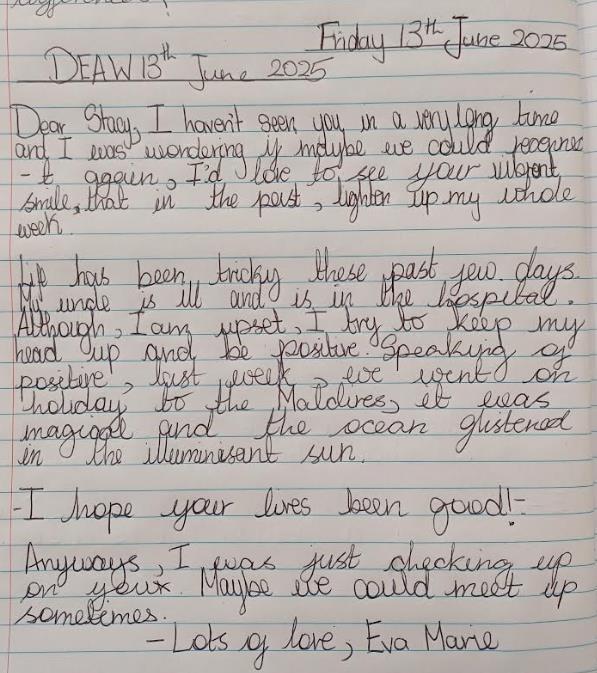 Friday 13th June 2025
DEAW 13th June 2025
Dear Stacy, I haven't seen you in a very long time
and I was wondering if maybe we could reconnec
-t again, I'd love to see your vibrent
smile, that in the past, lighten up my whole
week.
Life has been tricky these past few days.
My uncle is ill and is in the hospital.
Although, I am upset, I try to keep my
head up and be positive. Speaking of
positive, last week, we went on
holiday to the Maldives, it was
magical and the ocean glistened
in the illuminesant sun.
-I hope your lives been good!-
Anyways, I was just checking up
on you. Maybe we could meet up
sometimes.
-Lots of love, Eva Marie